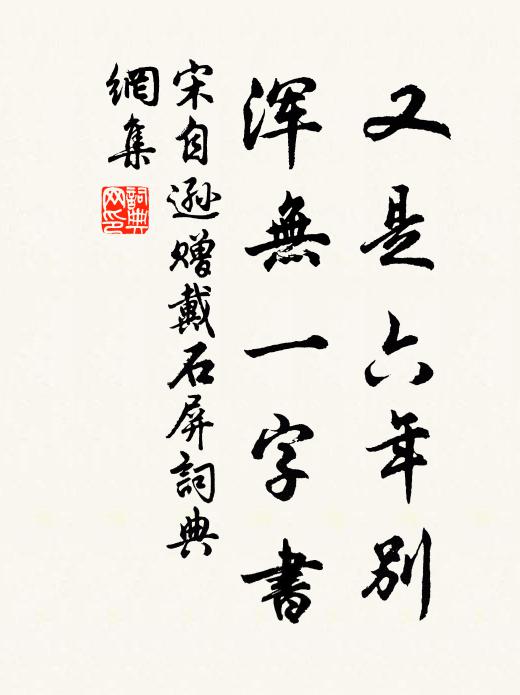 又是六年別
渾無一字書
宋自遜贈戴石屏詞典
網集
詞典網印